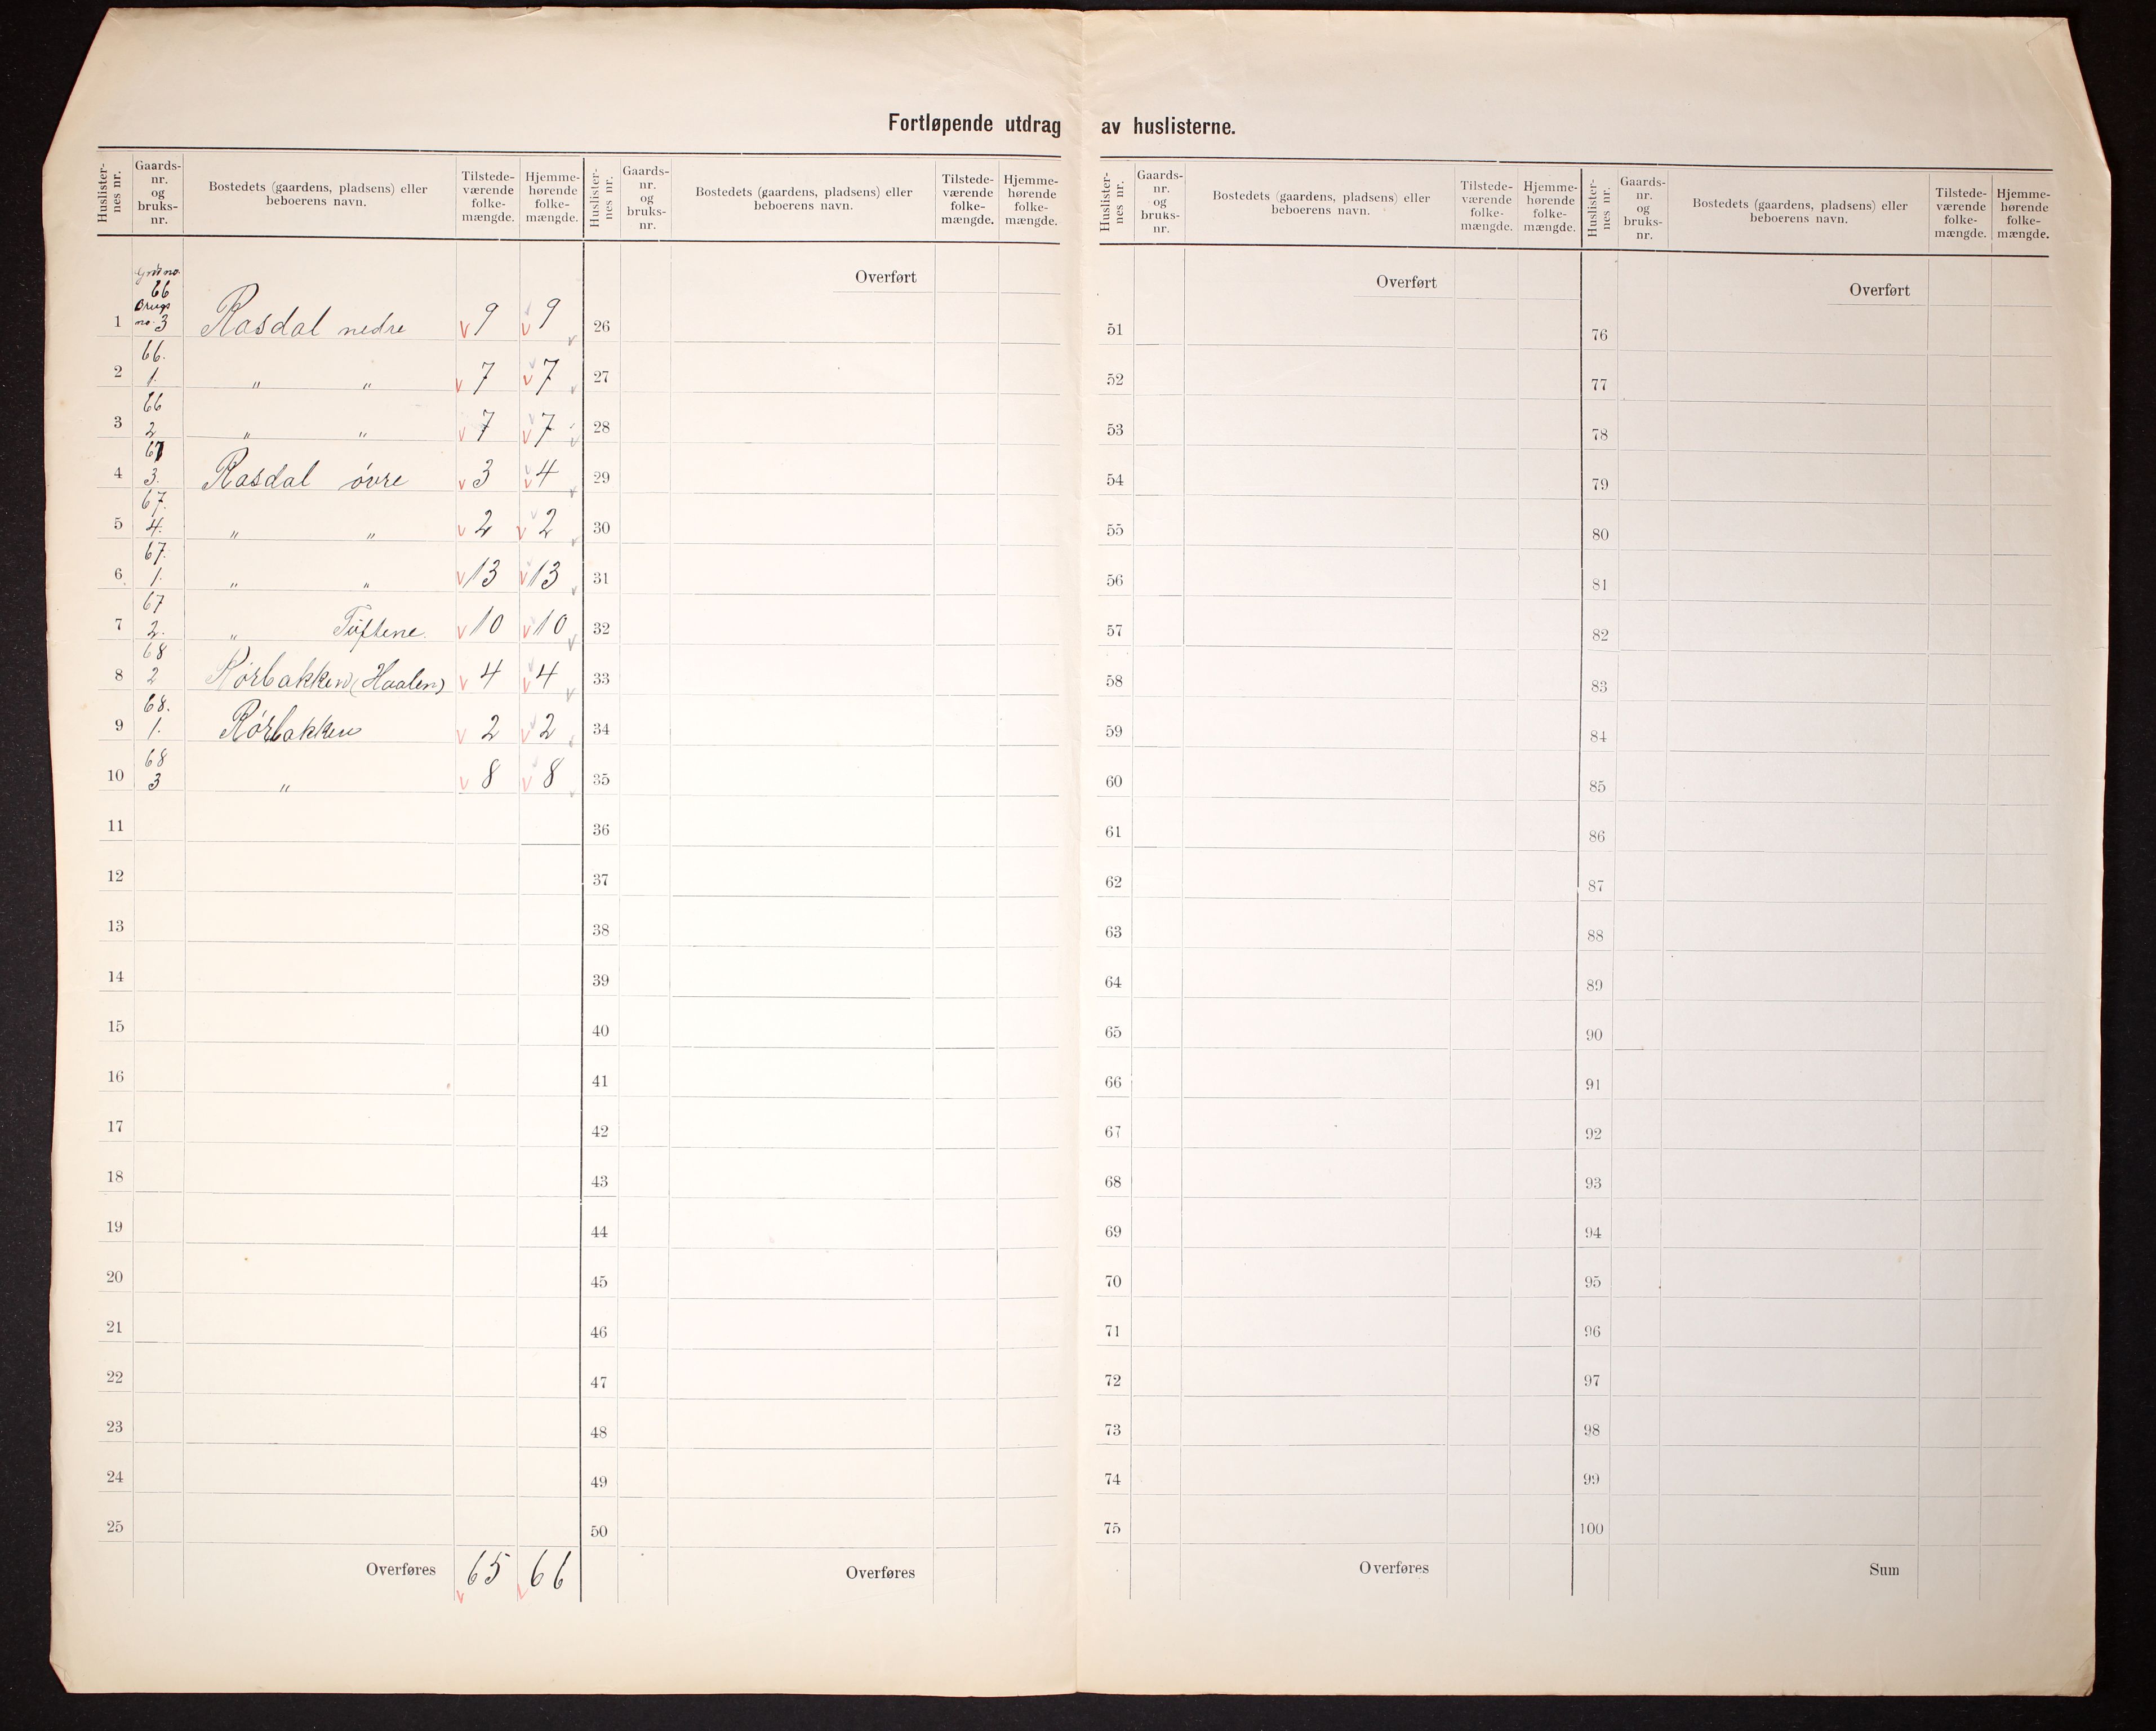 Fortløpende utdrag av huslisterne.
Huslister-nes nr. Gaards-nr. og bruks-nr. Bostedets (gaardens, pladsens) eller beboerens navn. Tilstede-værende folke-mængde. Hjemme-hørende folke-mængde.
Huslister-nes nr. Gaards-nr. og bruks-nr. Bostedets (gaardens, pladsens) eller beboerens navn. Tilstede-værende folke-mængde. Hjemme-hørende folke-mængde.
Huslister-nes nr. Gaards-nr. og bruks-nr. Bostedets (gaardens, pladsens) eller beboerens navn. Tilstede-værende folke-mængde. Hjemme-hørende folke-mængde.
Huslister-nes nr. Gaards-nr. og bruks-nr. Bostedets (gaardens, pladsens) eller beboerens navn. Tilstede-værende folke-mængde. Hjemme-hørende folke-mængde.
66
Brugs
1 no. 3 Rasdal nedre 9 9
2 66. 1. " " 7 7
3 66 2 " " 7 7
4 67 3. Rasdal óvre 3 4
5 67. 4. " " 2 2
6 67. 1. " " 13 13
7 67 2. " Tóftene. 10 10
8 68 2 Rórbakken (Haalen) 4 4
9 68. 1. Rórbakken 2 2
10 68 3 " 8 8
11
12
13
14
15
16
17
18
19
20
21
22
23
24
25
Overføres 65 66
Overført
26
27
28
29
30
31
32
33
34
35
36
37
38
39
40
41
42
43
44
45
46
47
48
49
50
Overføres
Overført
51
52
53
54
55
56
57
58
59
60
61
62
63
64
65
66
67
68
69
70
71
72
73
74
75
Overføres
Overført
76
77
78
79
80
81
82
83
84
85
86
87
88
89
90
91
92
93
94
95
96
97
98
99
100
Sum